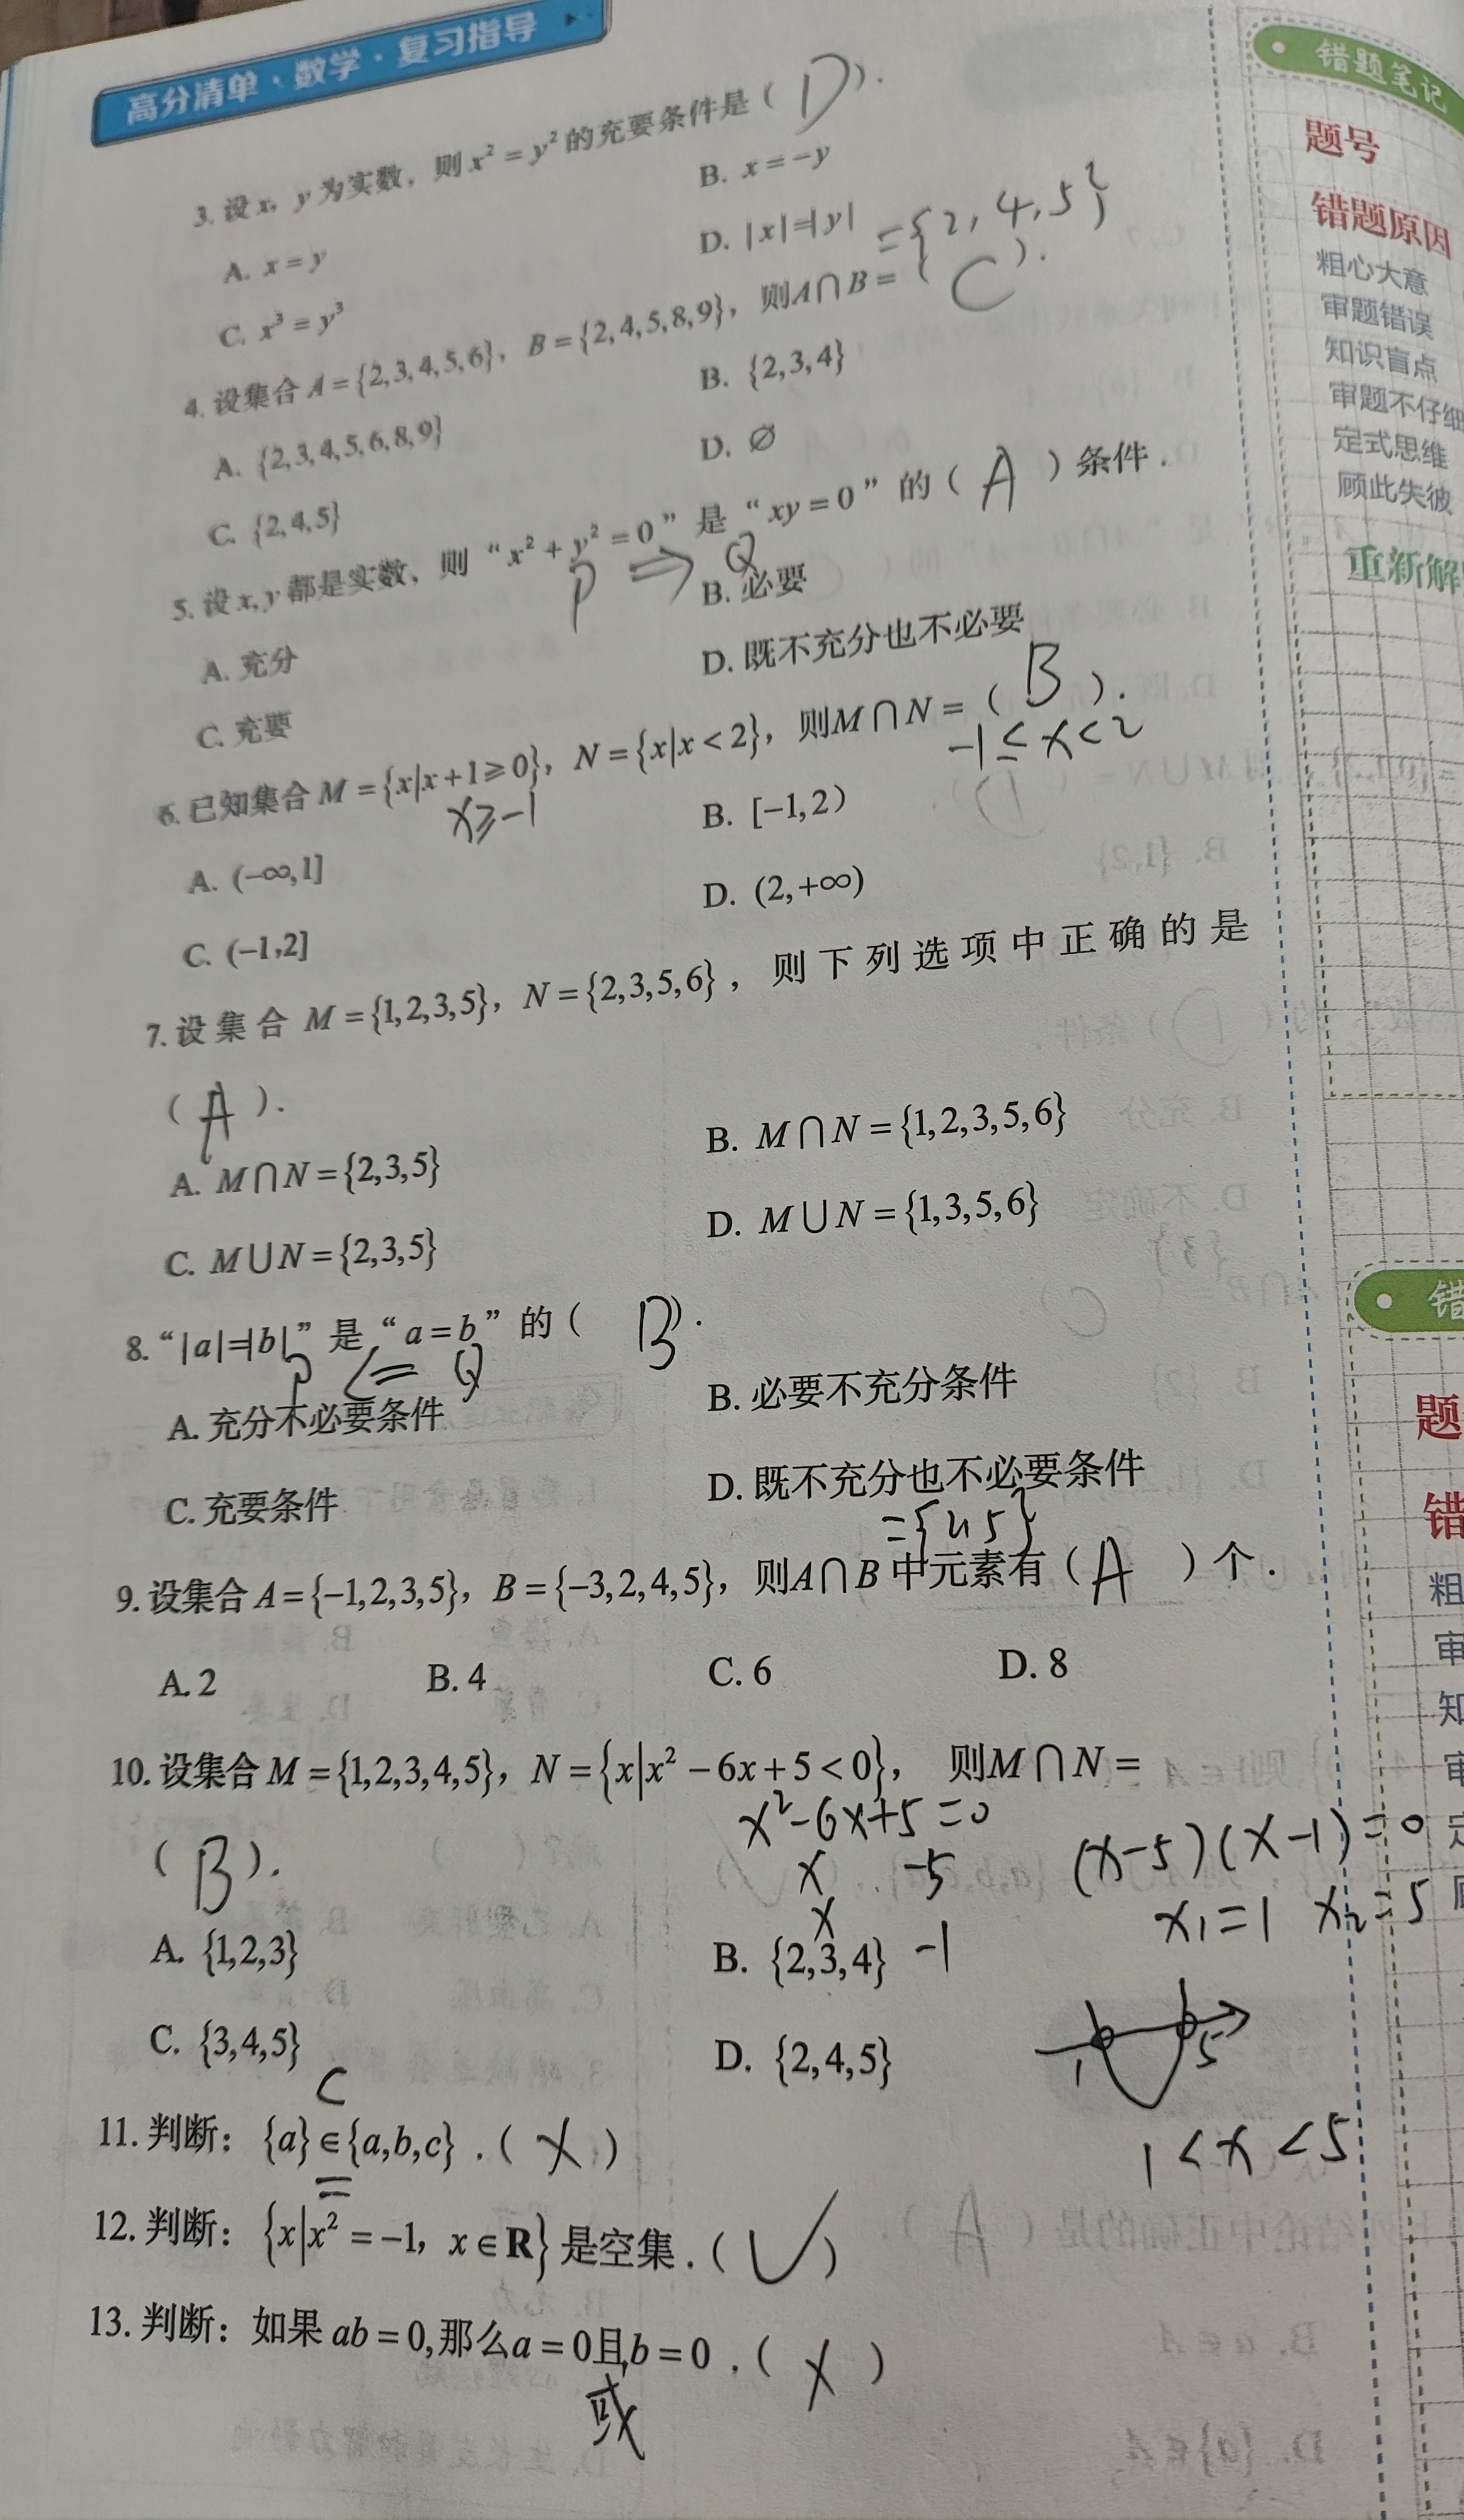 高分清单·数学·复习指导
3. 设x，y为实数，则x²=y²的充要条件是（ D ）.
A. x=y
B. x=-y
C. x³=y³
D. |x|=|y|
={2,4,5}
4. 设集合A={2,3,4,5,6}，B={2,4,5,8,9}，则A∩B=（ C ）.
A. {2,3,4,5,6,8,9}
B. {2,3,4}
C. {2,4,5}
D. ∅
5. 设x,y都是实数，则“x²+y²=0”是“xy=0”的（ A ）条件.
P ⇒ Q
A. 充分
B. 必要
C. 充要
D. 既不充分也不必要
6. 已知集合M={x|x+1⩾0}，N={x|x<2}，则M∩N=（ B ）.
x⩾-1
-1≤x<2
A. (-∞,1]
B. [-1,2）
C. (-1,2]
D. (2,+∞)
7. 设集合 M={1,2,3,5}，N={2,3,5,6}，则下列选项中正确的是
（ A ）.
A. M∩N={2,3,5}
B. M∩N={1,2,3,5,6}
C. M∪N={2,3,5}
D. M∪N={1,3,5,6}
8. “|a|=|b|”是“a=b”的（ B ）.
P ⇐ Q
A. 充分不必要条件
B. 必要不充分条件
C. 充要条件
D. 既不充分也不必要条件
9. 设集合A={-1,2,3,5}，B={-3,2,4,5}，则A∩B中元素有（ A ）个.
A. 2
B. 4
C. 6
D. 8
10. 设集合M={1,2,3,4,5}，N={x|x²-6x+5<0}，则M∩N=
（ B ）.
x²-6x+5=0
x -5
x -1
(x-5)(x-1)=0
x₁=1 x₂=5
A. {1,2,3}
B. {2,3,4}
C. {3,4,5}
D. {2,4,5}
1 5
1<x<5
⊂
11. 判断：{a}∈{a,b,c}.（ X ）
12. 判断：{x|x²=-1，x∈R}是空集.（ √ ）
13. 判断：如果ab=0,那么a=0且b=0.（ X ）
或
错题笔记
题号
错题原因
粗心大意
审题错误
知识盲点
审题不仔细
定式思维
顾此失彼
重新解
错
题
错
粗
审
知
审
定